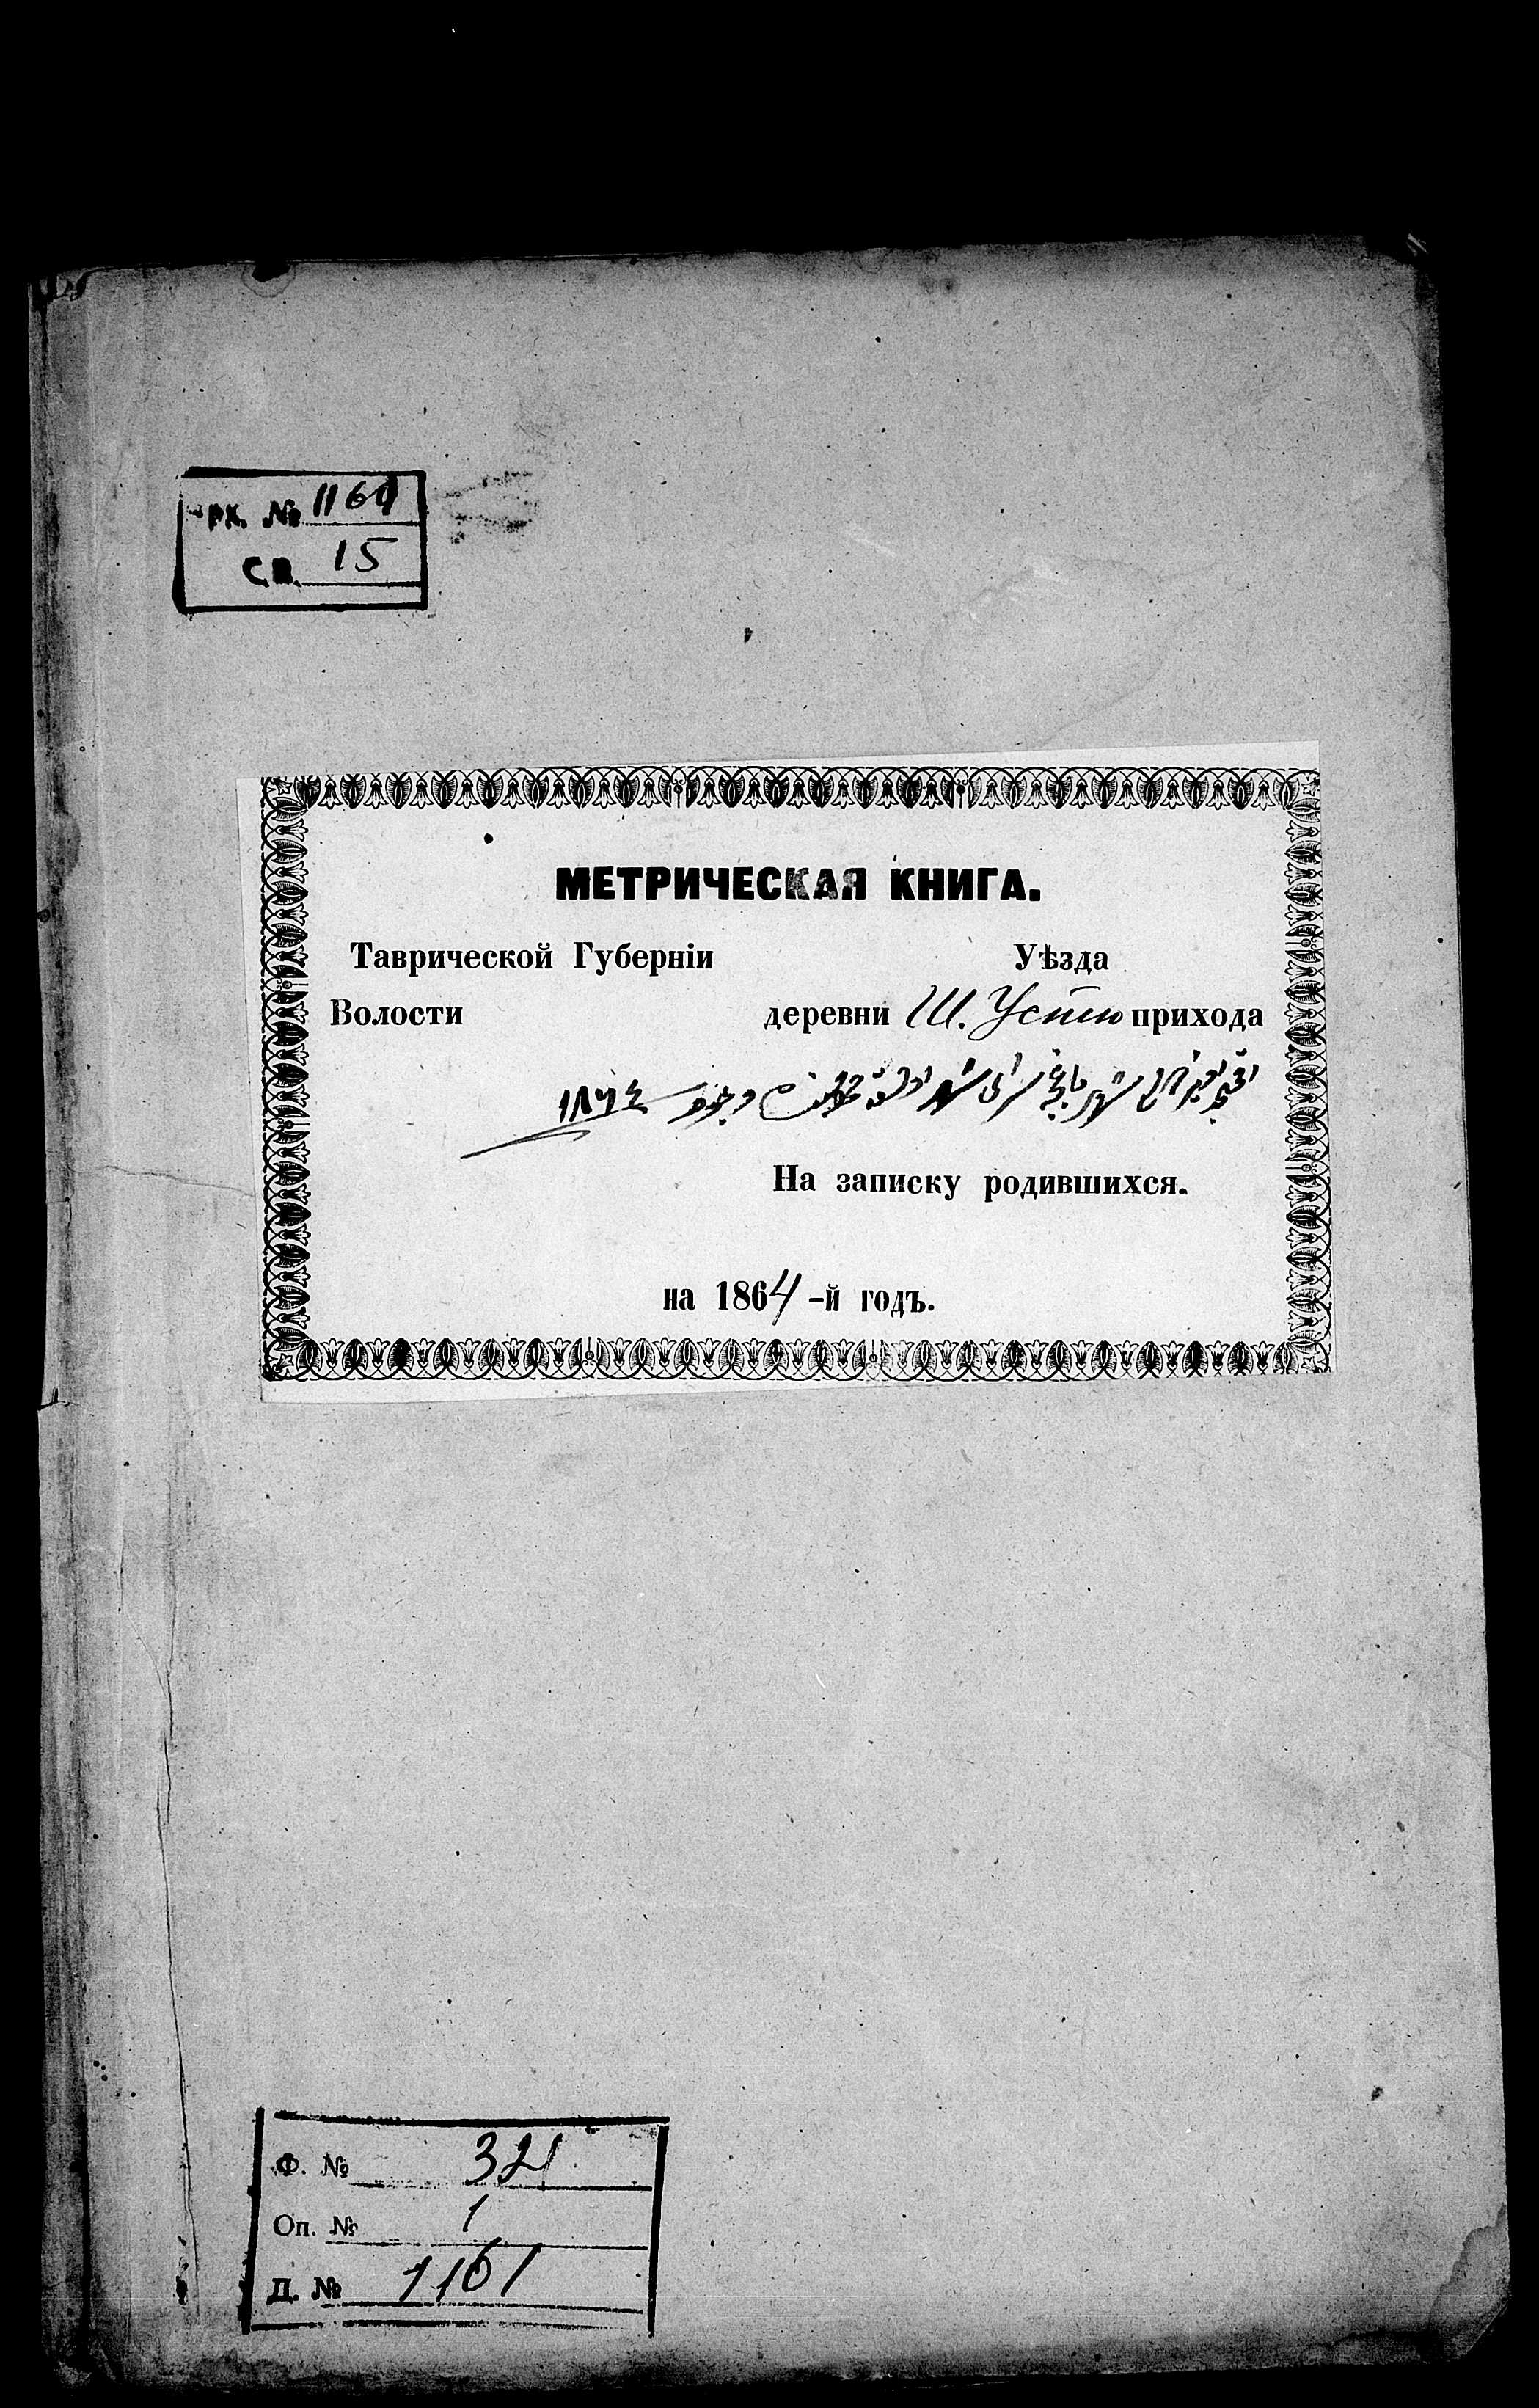 рх. № 1161
св. 15
МЕТРИЧЕСКАЯ КНИГА.
Таврической Губерніи Уѣзда
Волости деревни Ш. Устю прихода
شهر باغچه سراى شهر ١٨٦٤
На записку родившихся.
на 1864-й годъ.
Ф. № 321
Оп. № 1
Д. № 1161